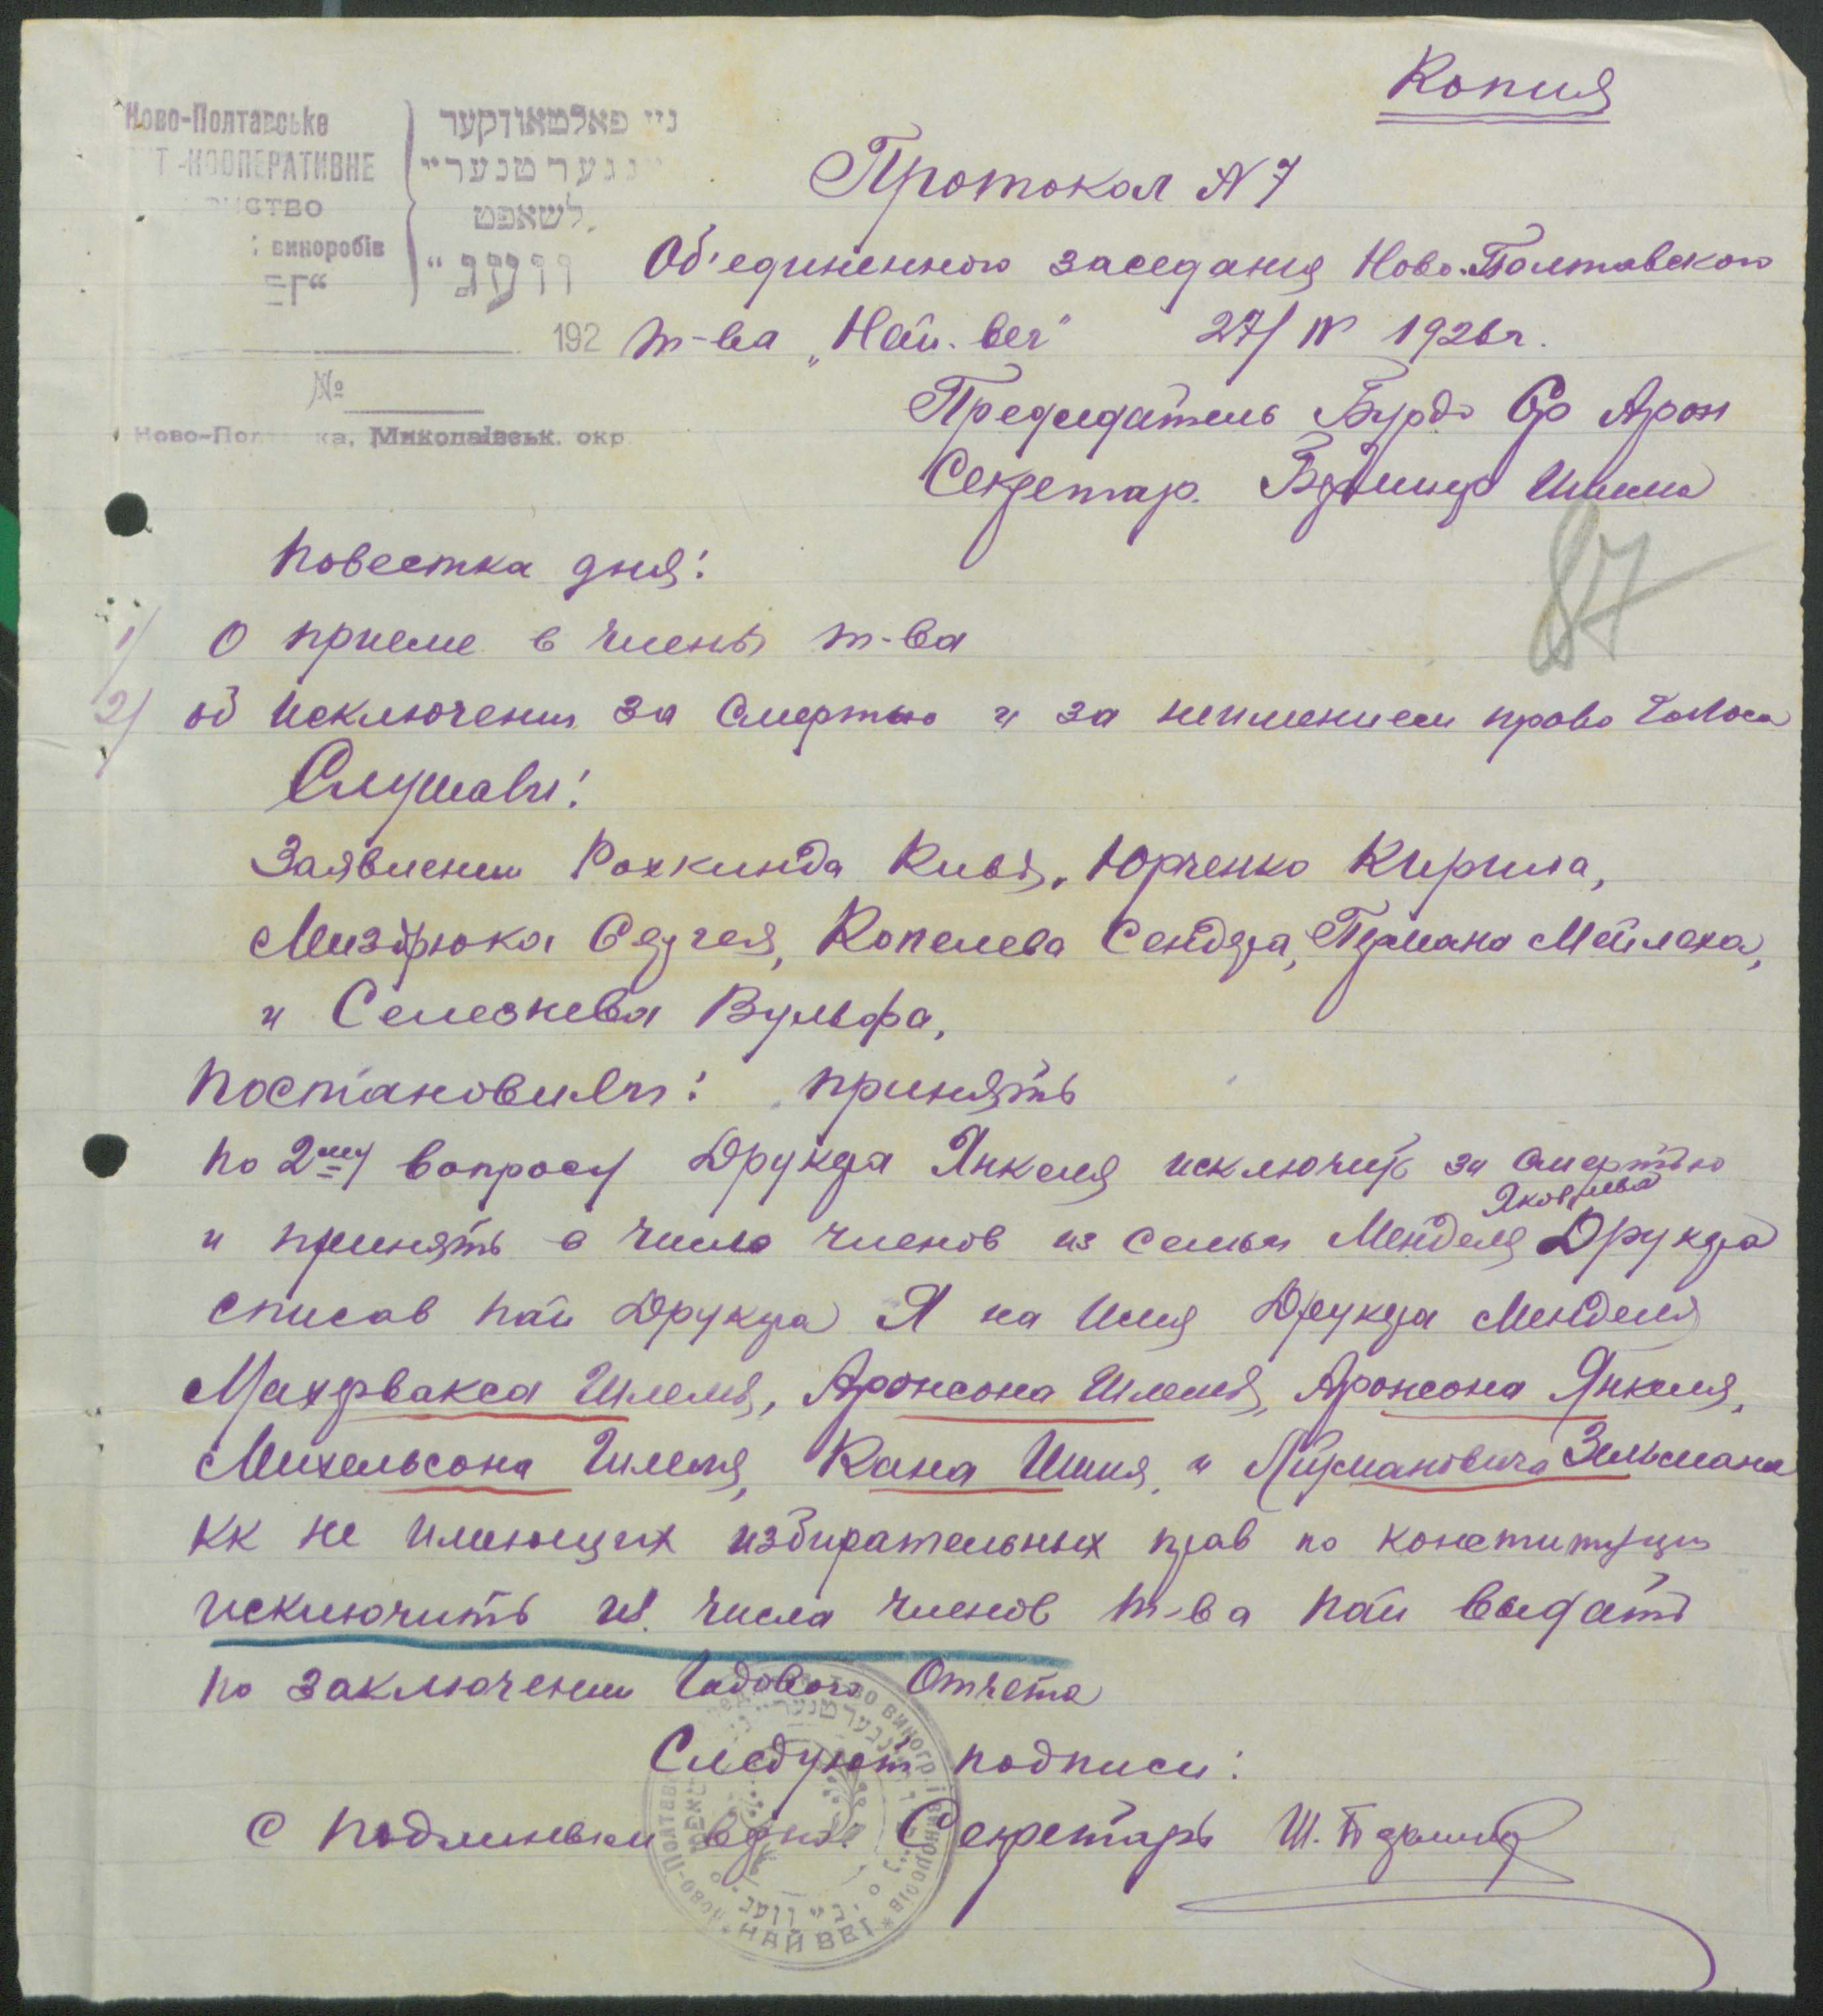 Копия
Ново-Полтавське
-КООПЕРАТИВНЕ
виноробів
ניי פאלטאווקער
לשאפט
וועג"
192
№
Ново-Пол ка, Миколаївськ. окр
Протокол N 7
Об'единенного заседания Ново-Полтавского
т-ва „Най-вег" 27/IV 1926 г.
Председатель Бурдо Ср Арон
Секретар.
87
Повестка дня:
1) О приеме в члены т-ва
2) об исключении за смертью и за неимением право голоса
Слушали:
Заявлении Рохкинда Кивы, Юрченко Кирила,
Миздрюка Сергея, Копелева Сендера, Пермана Мейлеха,
и Селезнева Вульфа,
Постановили: принять
По 2му вопросу Друкера Янкеля исключить за смертью
и принять в число членов из семьи Менделя Яковлева Друкера
списав пай Друкера Я на имя Друкера Менделя
Махервакса Шлемы, Аронсона Шлемы, Аронсона Янкеля,
Михельсона Шлемы, Кана Шиия, и Зельмана
кк не имеющих избирательных прав по конституции
исключить из числа членов т-ва пай выдать
по заключении Годового Отчета
Следуют подписи:
С подлиным верно. Секретарь Ш.
НАЙ ВЕГ